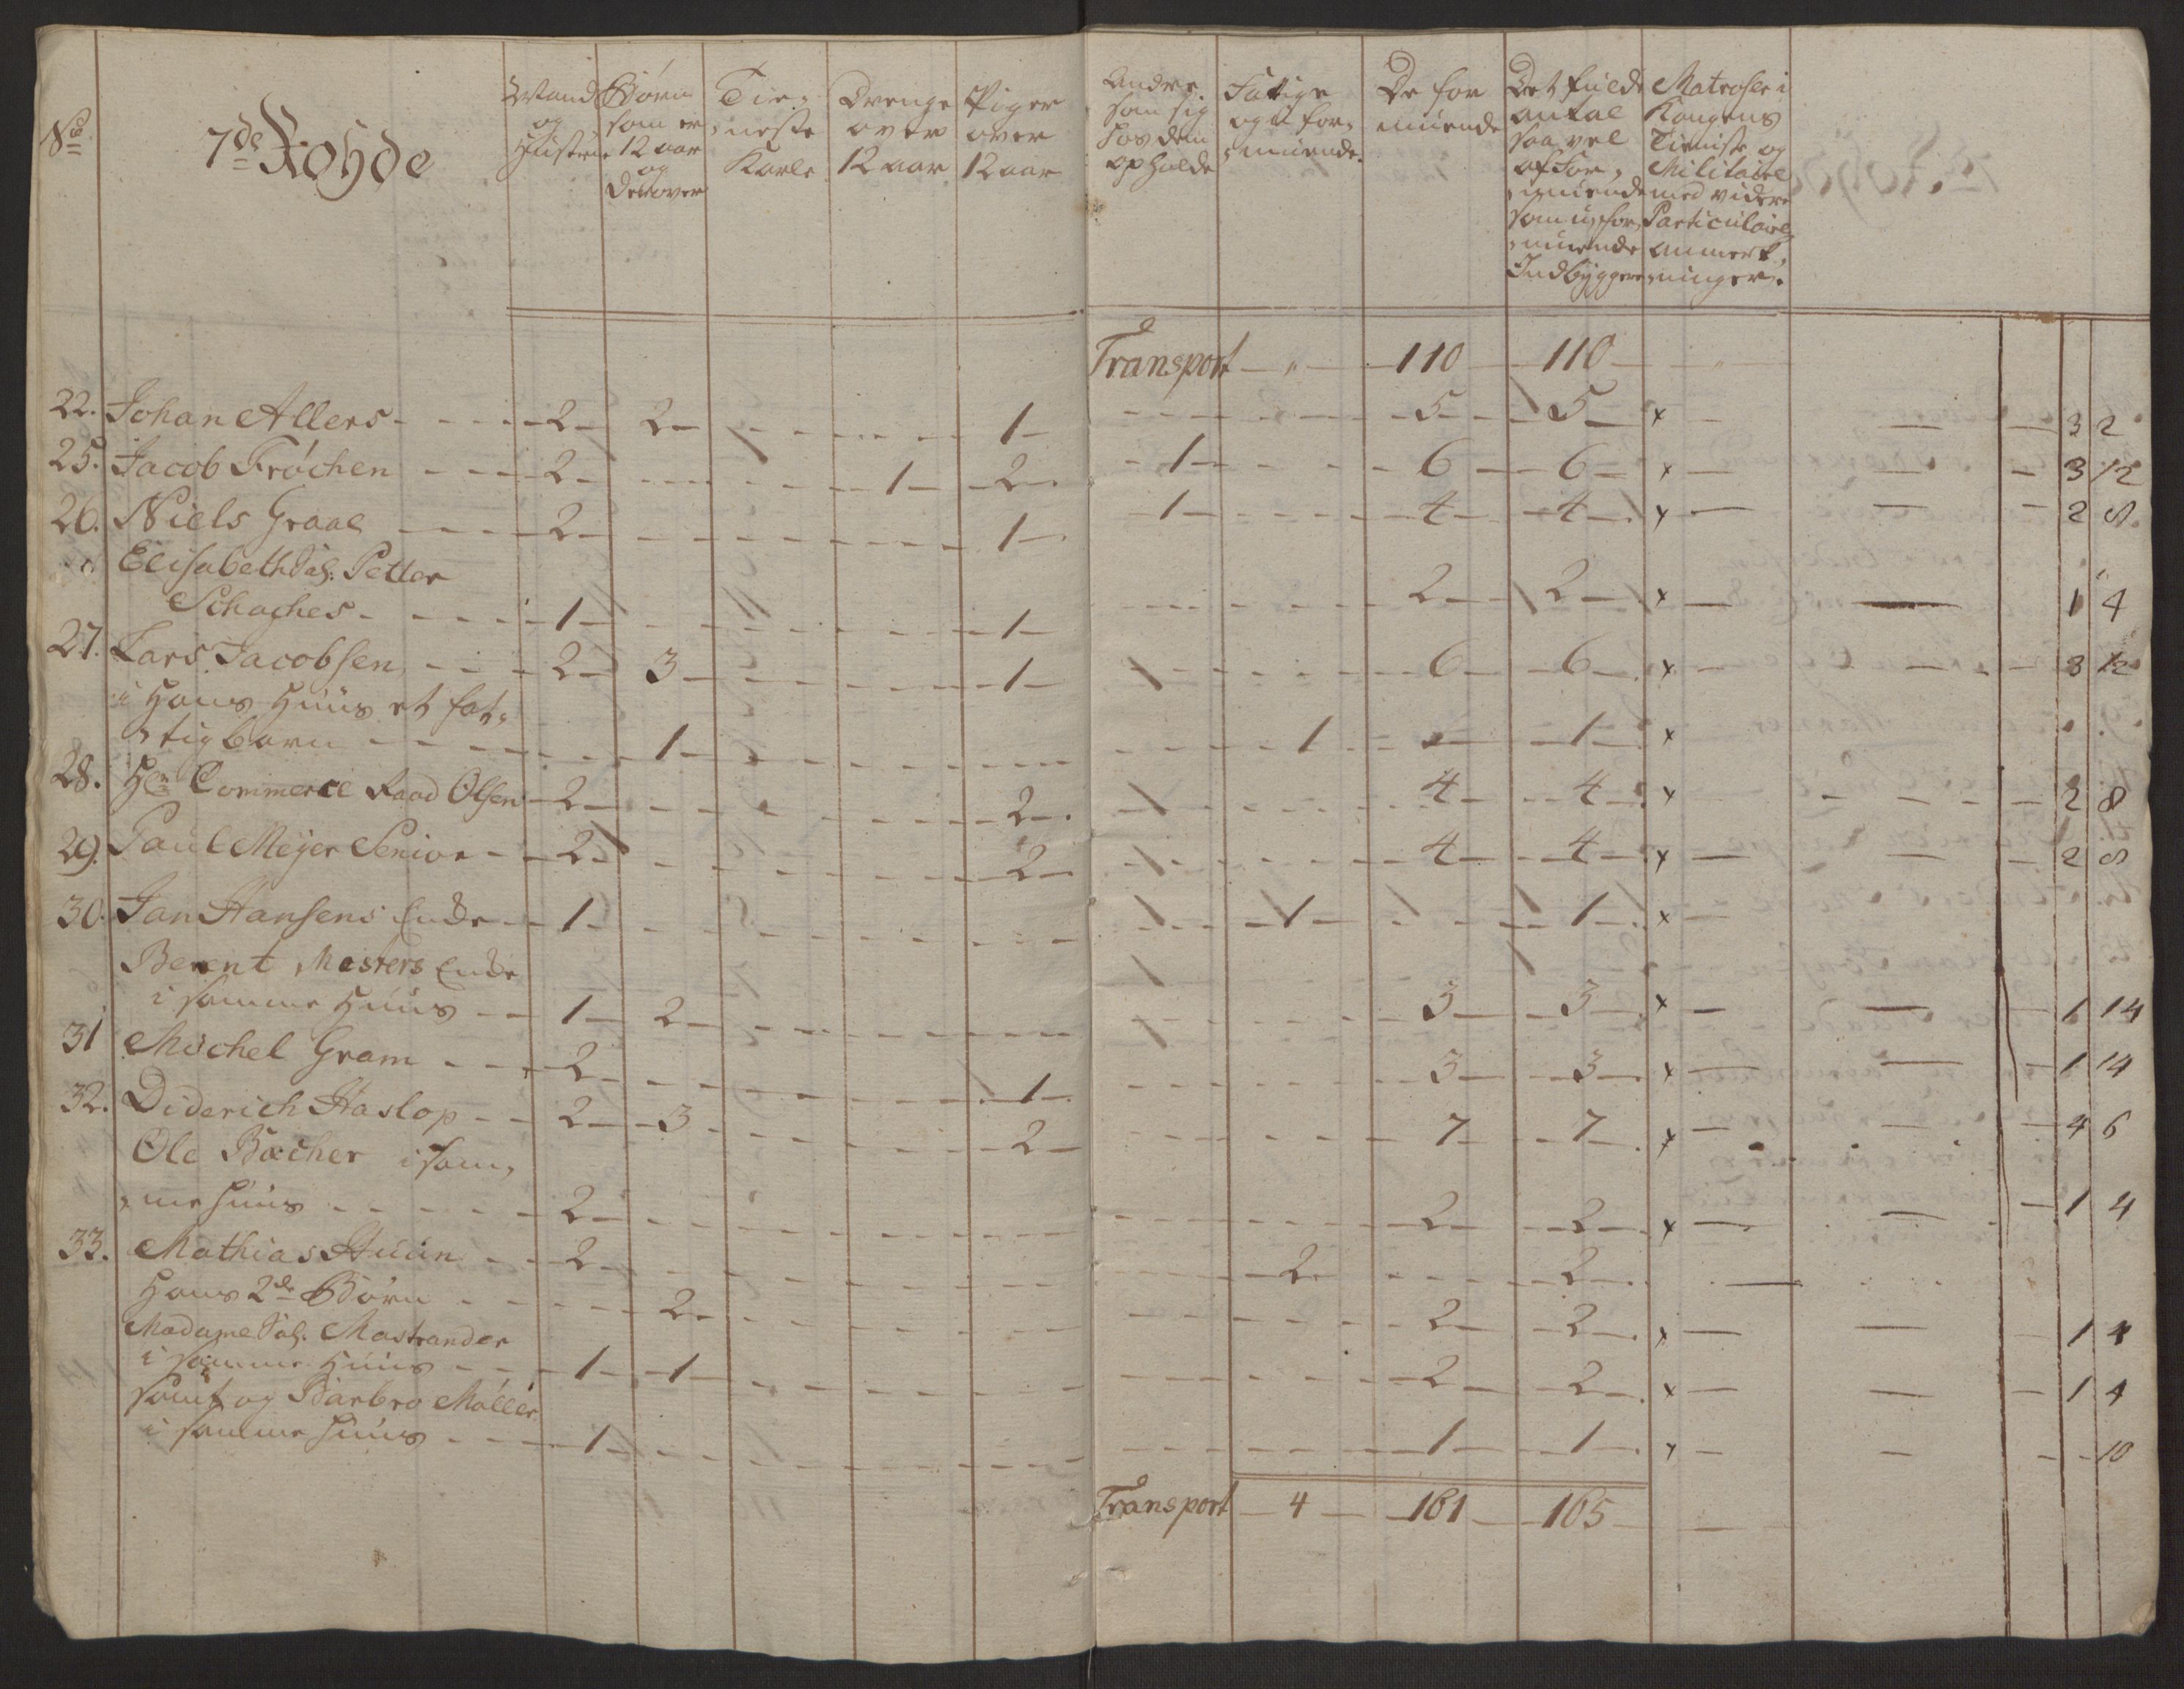 No
7de Rohde
Mand og Hustrue
Børn som er 12 aar og derover
Tie,neste Karle
Drenge over 12 aar
Piger over 12 aar
Andre som sig hos dem opholde
Fattige og ufor,muende
De formuende
Det fulde antal saavel af For,muende som ufor,muende Indbyggere
Matroser i Kongens Tieniste og Militaire med videre Particulaire anmerk,ninger.
Transport — „ — 110 — 110 — „
22. Johan Allers - - - 2 - 2 - - - 1 - - - 5 - 5 - x - - 3 2
25. Jacob Frøchen - - - 2 - - - 1 - 2 - 1 - - 6 - 6 - x - - 3 12
26. Niels Graae - - - 2 - - - 1 - 1 - - 4 - 4 - x - - 2 8
Elisabeth Sal. Petter
Schaches - - - 1 - - - 1 - - - 2 - 2 - x - - 1 4
27. Lars Jacobsen - - - 2 - 3 - - - 1 - - - 6 - 6 - x - - 3 12
i Hans Huus et fat,
tig barn - - - 1 - - - 1 - - - 1 - x
28. Hr Commerce Raad Olsen - 2 - - - 2 - - - 4 - 4 - x - - 2 8
29. Paul Meyer Senior - - 2 - - - 2 - - - 4 - 4 - x - - 2 8
30. Jan Hansens Enke - - 1 - - - 1 - - - 1 - x -
Berent Mesters Enke
i samme Huus - - 1 - 2 - - - 3 - 3 - x - - 1 14
31 Michel Gram - - - 2 - - - 1 - - - 3 - 3 - x - - 1 14
32. Diderich Haslop - - 2 - 3 - - - 2 - - - 7 - 7 - x - - 4 6
Ole Bæcher i sam,
me Huus - - - 2 - - - 2 - 2 - x - - 1 4
33. Mathias - - 2 - - - 2 - - - 2 -
Hans 2de Børn - - - 2 - - - 2 - 2 - x - - 1 4
Madame Sal. Mastrander
i samme Huus - - - 1 - 1 - - - 2 - 2 - x - - 1 4
samt og Barbro Møller
i samme Huus - - - 1 - - - 1 - 1 - x - - - 10
Transport — 4 — 161 — 165 —